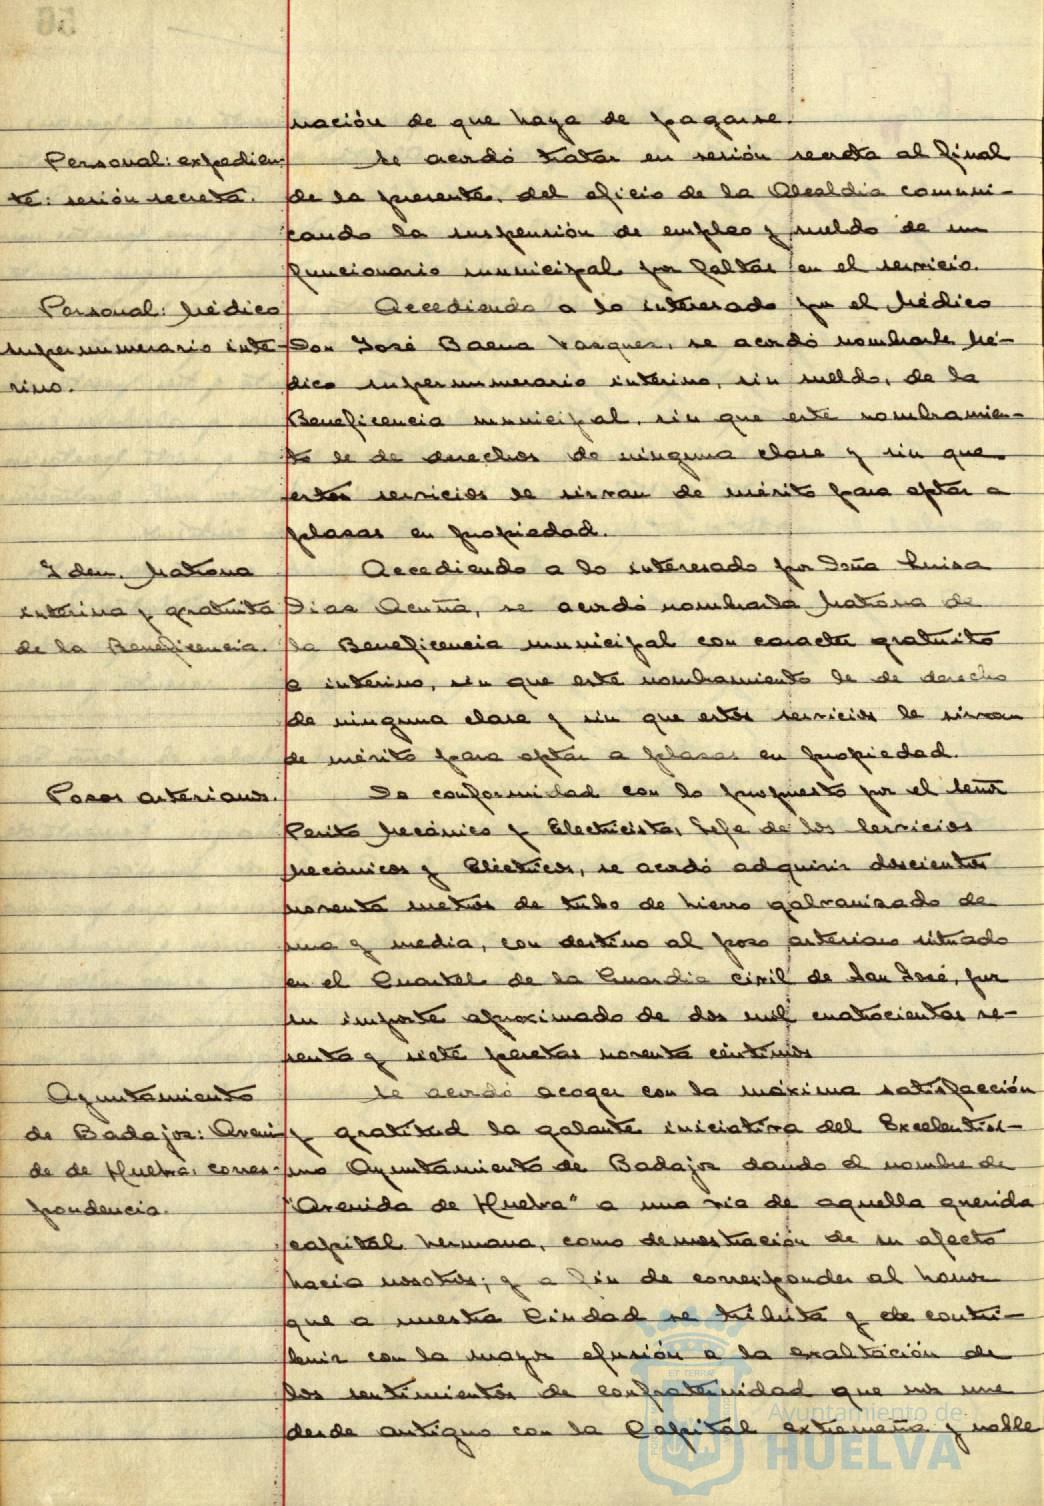 nación de que haya de pagarse.
Personal: expedien-
te: sesión secreta.
Se acordó tratar en sesión secreta al final
de la presente, del oficio de la Alcaldía comuni-
cando la suspensión de empleo y sueldo de un
funcionario municipal por faltas en el servicio.
Personal: Médico
supernumerario inte-
rino.
Accediendo a lo interesado por el Médico
Don José Baena Vazquez, se acordó nombrarle Mé-
dico supernumerario interino, sin sueldo, de la
Beneficencia municipal, sin que este nombramien-
to le de derechos de ninguna clase y sin que
estos servicios le sirvan de mérito para optar a
plazas en propiedad.
Idem. Matrona
interina y gratuita
de la Beneficencia.
Accediendo a lo interesado por Doña Luisa
Diaz Acuña, se acordó nombrarla Matrona de
la Beneficencia municipal con caracter gratuito
e interino, sin que este nombramiento le de derecho
de ninguna clase y sin que estos servicios le sirvan
de mérito para optar a plazas en propiedad.
Pozos artesianos.
De conformidad con lo propuesto por el Señor
Perito Mecánico y Electricista, Jefe de los Servicios
Mecánicos y Eléctricos, se acordó adquirir doscientos
noventa metros de tubo de hierro galvanizado de
una y media, con destino al pozo artesiano situado
en el Cuartel de la Guardia Civil de San José, por
su importe aproximado de dos mil cuatrocientas se-
senta y siete pesetas noventa céntimos
Ayuntamiento
de Badajoz: Aveni-
da de Huelva: corres-
pondencia.
Se acordó acoger con la máxima satisfacción
y gratitud la galante iniciativa del Excelentísi-
mo Ayuntamiento de Badajoz dando el nombre de
"Avenida de Huelva" a una vía de aquella querida
capital hermana, como demostración de su afecto
hacia nosotros; y a fin de corresponder al honor
que a nuestra Ciudad se tributa y de contri-
buir con la mayor efusión a la exaltación de
los sentimientos de confraternidad que nos une
desde antiguo con la Capital extremeña y noble
Ayuntamiento de
HUELVA